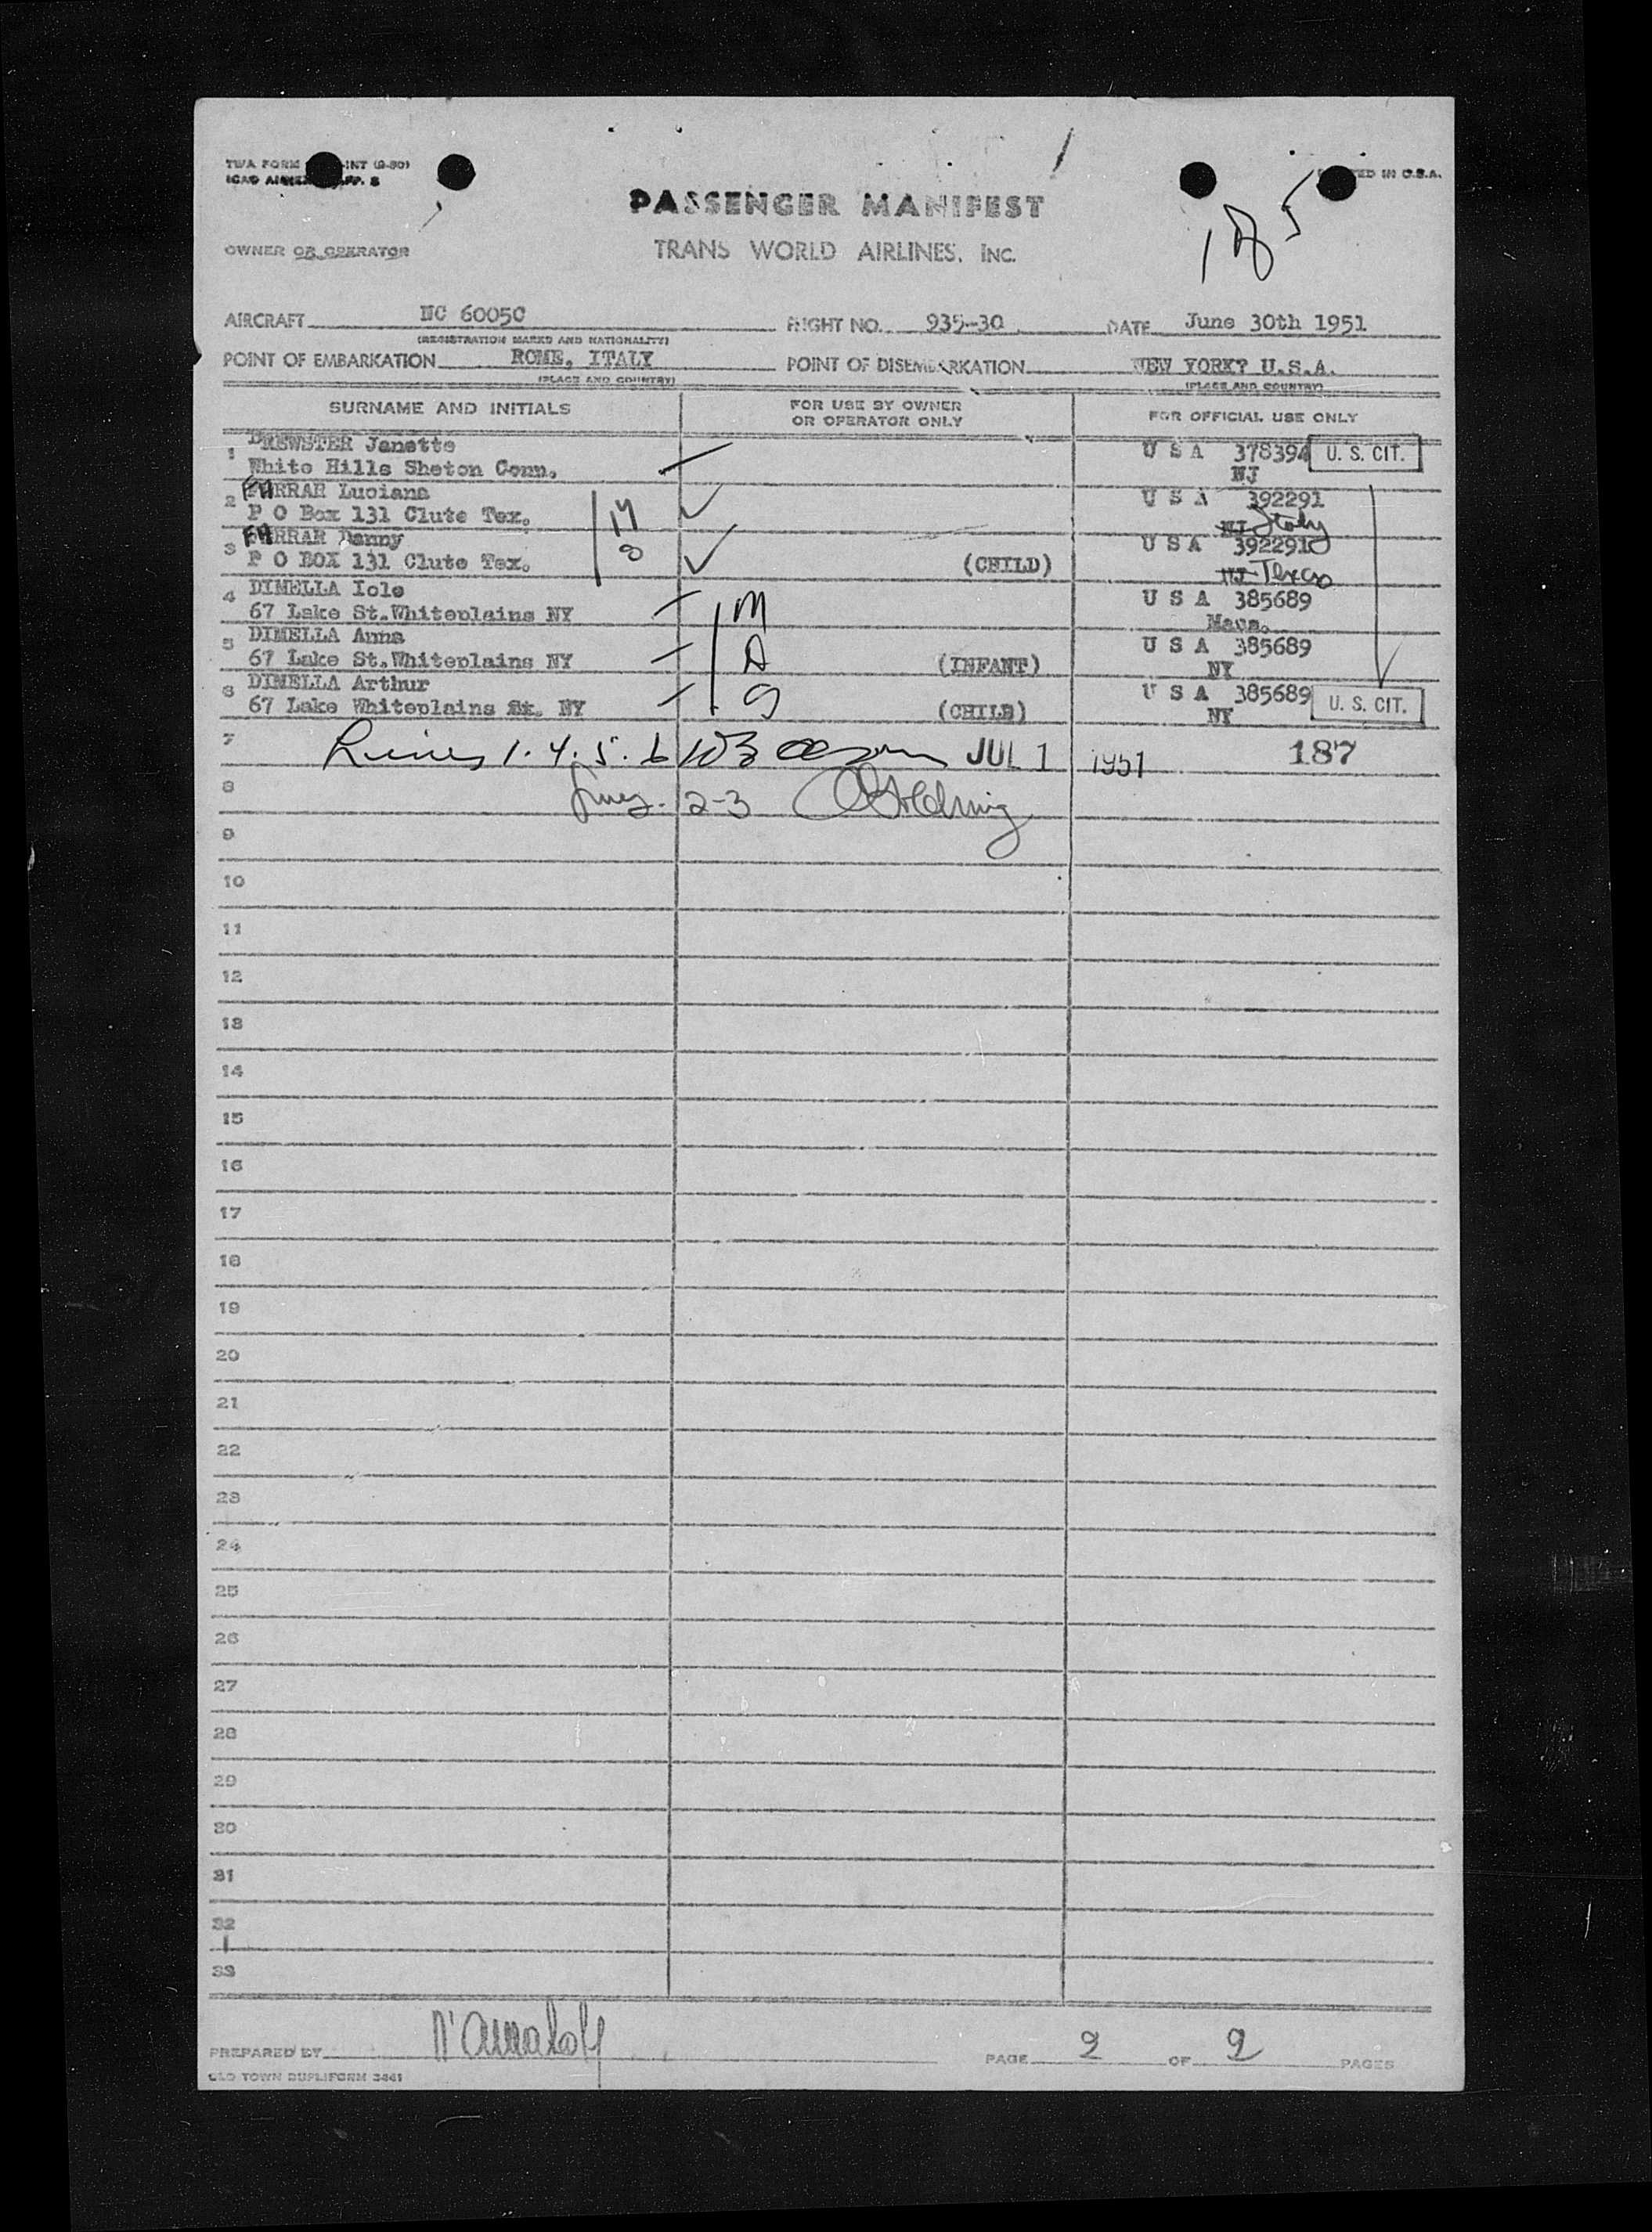 TWA FORM INT (9-50)
ICAO ANNEX APP. 5
PRINTED IN U.S.A.
PASSENGER MANIFEST
185
OWNER OR OPERATOR
TRANS WORLD AIRLINES, INC.
AIRCRAFT NC 6005C FLIGHT NO. 935-30 DATE June 30th 1951
(REGISTRATION MARKS AND NATIONALITY)
POINT OF EMBARKATION ROME, ITALY POINT OF DISEMBARKATION NEW YORK? U.S.A.
(PLACE AND COUNTRY) (PLACE AND COUNTRY)
SURNAME AND INITIALS FOR USE BY OWNER OR OPERATOR ONLY FOR OFFICIAL USE ONLY
1 BREWSTER Janette U S A 378394 U. S. CIT.
White Hills Sheton Conn. NJ
2 FARRAR Luciana U S A 392291
P O Box 131 Clute Tex. M NJ Italy
3 FARRAR Danny U S A 392291
P O BOX 131 Clute Tex. (CHILD) NJ Texas
4 DIMELLA Iole U S A 385689
67 Lake St.Whiteplains NY M Mass.
5 DIMELLA Anna U S A 385689
67 Lake St.Whiteplains NY (INFANT) NY
6 DIMELLA Arthur U S A 385689 U. S. CIT.
67 Lake Whiteplains St. NY (CHILD) NY
7 Lines 1.4.5.6 JUL 1 1951 187
8 Lines. 2-3
9
10
11
12
13
14
15
16
17
18
19
20
21
22
23
24
25
26
27
28
29
30
31
32
33
PREPARED BY PAGE 2 OF 2 PAGES
OLD TOWN DUPLIFORM 3441